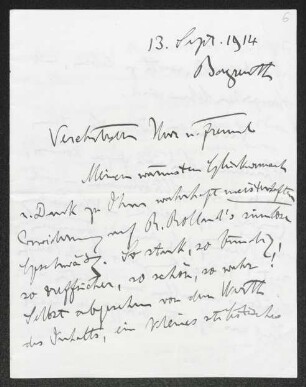 6
13. Sept. 1914
Bayreuth
Verehrtester Herr u. Freund
Meinen wärmsten Glückwunsch
u. Dank zu Ihrer wahrhaft meisterhaften
Erwiderung auf R. Rolland's
Geschwätz. So stark, so bündig,
so treffsicher, so schön, so wahr!
Selbst abgesehen von dem Werth
des Inhalts, ein kleines stilistisches